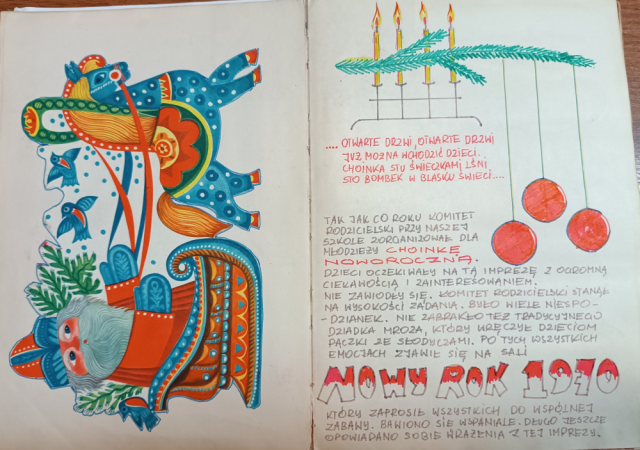 .... OTWARTE DRZWI, OTWARTE DRZWI
JUŻ MOŻNA WCHODZIĆ DZIECI.
CHOINKA STU ŚWIECZKAMI LŚNI
STO BOMBEK W BLASKU ŚWIECI....
TAK JAK CO ROKU KOMITET
RODZICIELSKI PRZY NASZEJ
SZKOLE ZORGANIZOWAŁ DLA
MŁODZIEŻY CHOINKĘ
NOWOROCZNĄ.
DZIECI OCZEKIWAŁY NA TĄ IMPREZĘ Z OGROMNĄ
CIEKAWOŚCIĄ I ZAINTERESOWANIEM.
NIE ZAWIODŁY SIĘ. KOMITET RODZICIELSKI STANĄŁ
NA WYSOKOŚCI ZADANIA. BYŁO WIELE NIESPO-
-DZIANEK. NIE ZABRAKŁO TEŻ TRADYCYJNEGO
DZIADKA MROZA, KTÓRY WRĘCZYŁ DZIECIOM
PACZKI ZE SŁODYCZAMI. PO TYCH WSZYSTKICH
EMOCJACH ZJAWIŁ SIĘ NA SALI
NOWY ROK 1970
KTÓRY ZAPROSIŁ WSZYSTKICH DO WSPÓLNEJ
ZABAWY. BAWIONO SIĘ WSPANIALE. DŁUGO JESZCZE
OPOWIADANO SOBIE WRAŻENIA Z TEJ IMPREZY.